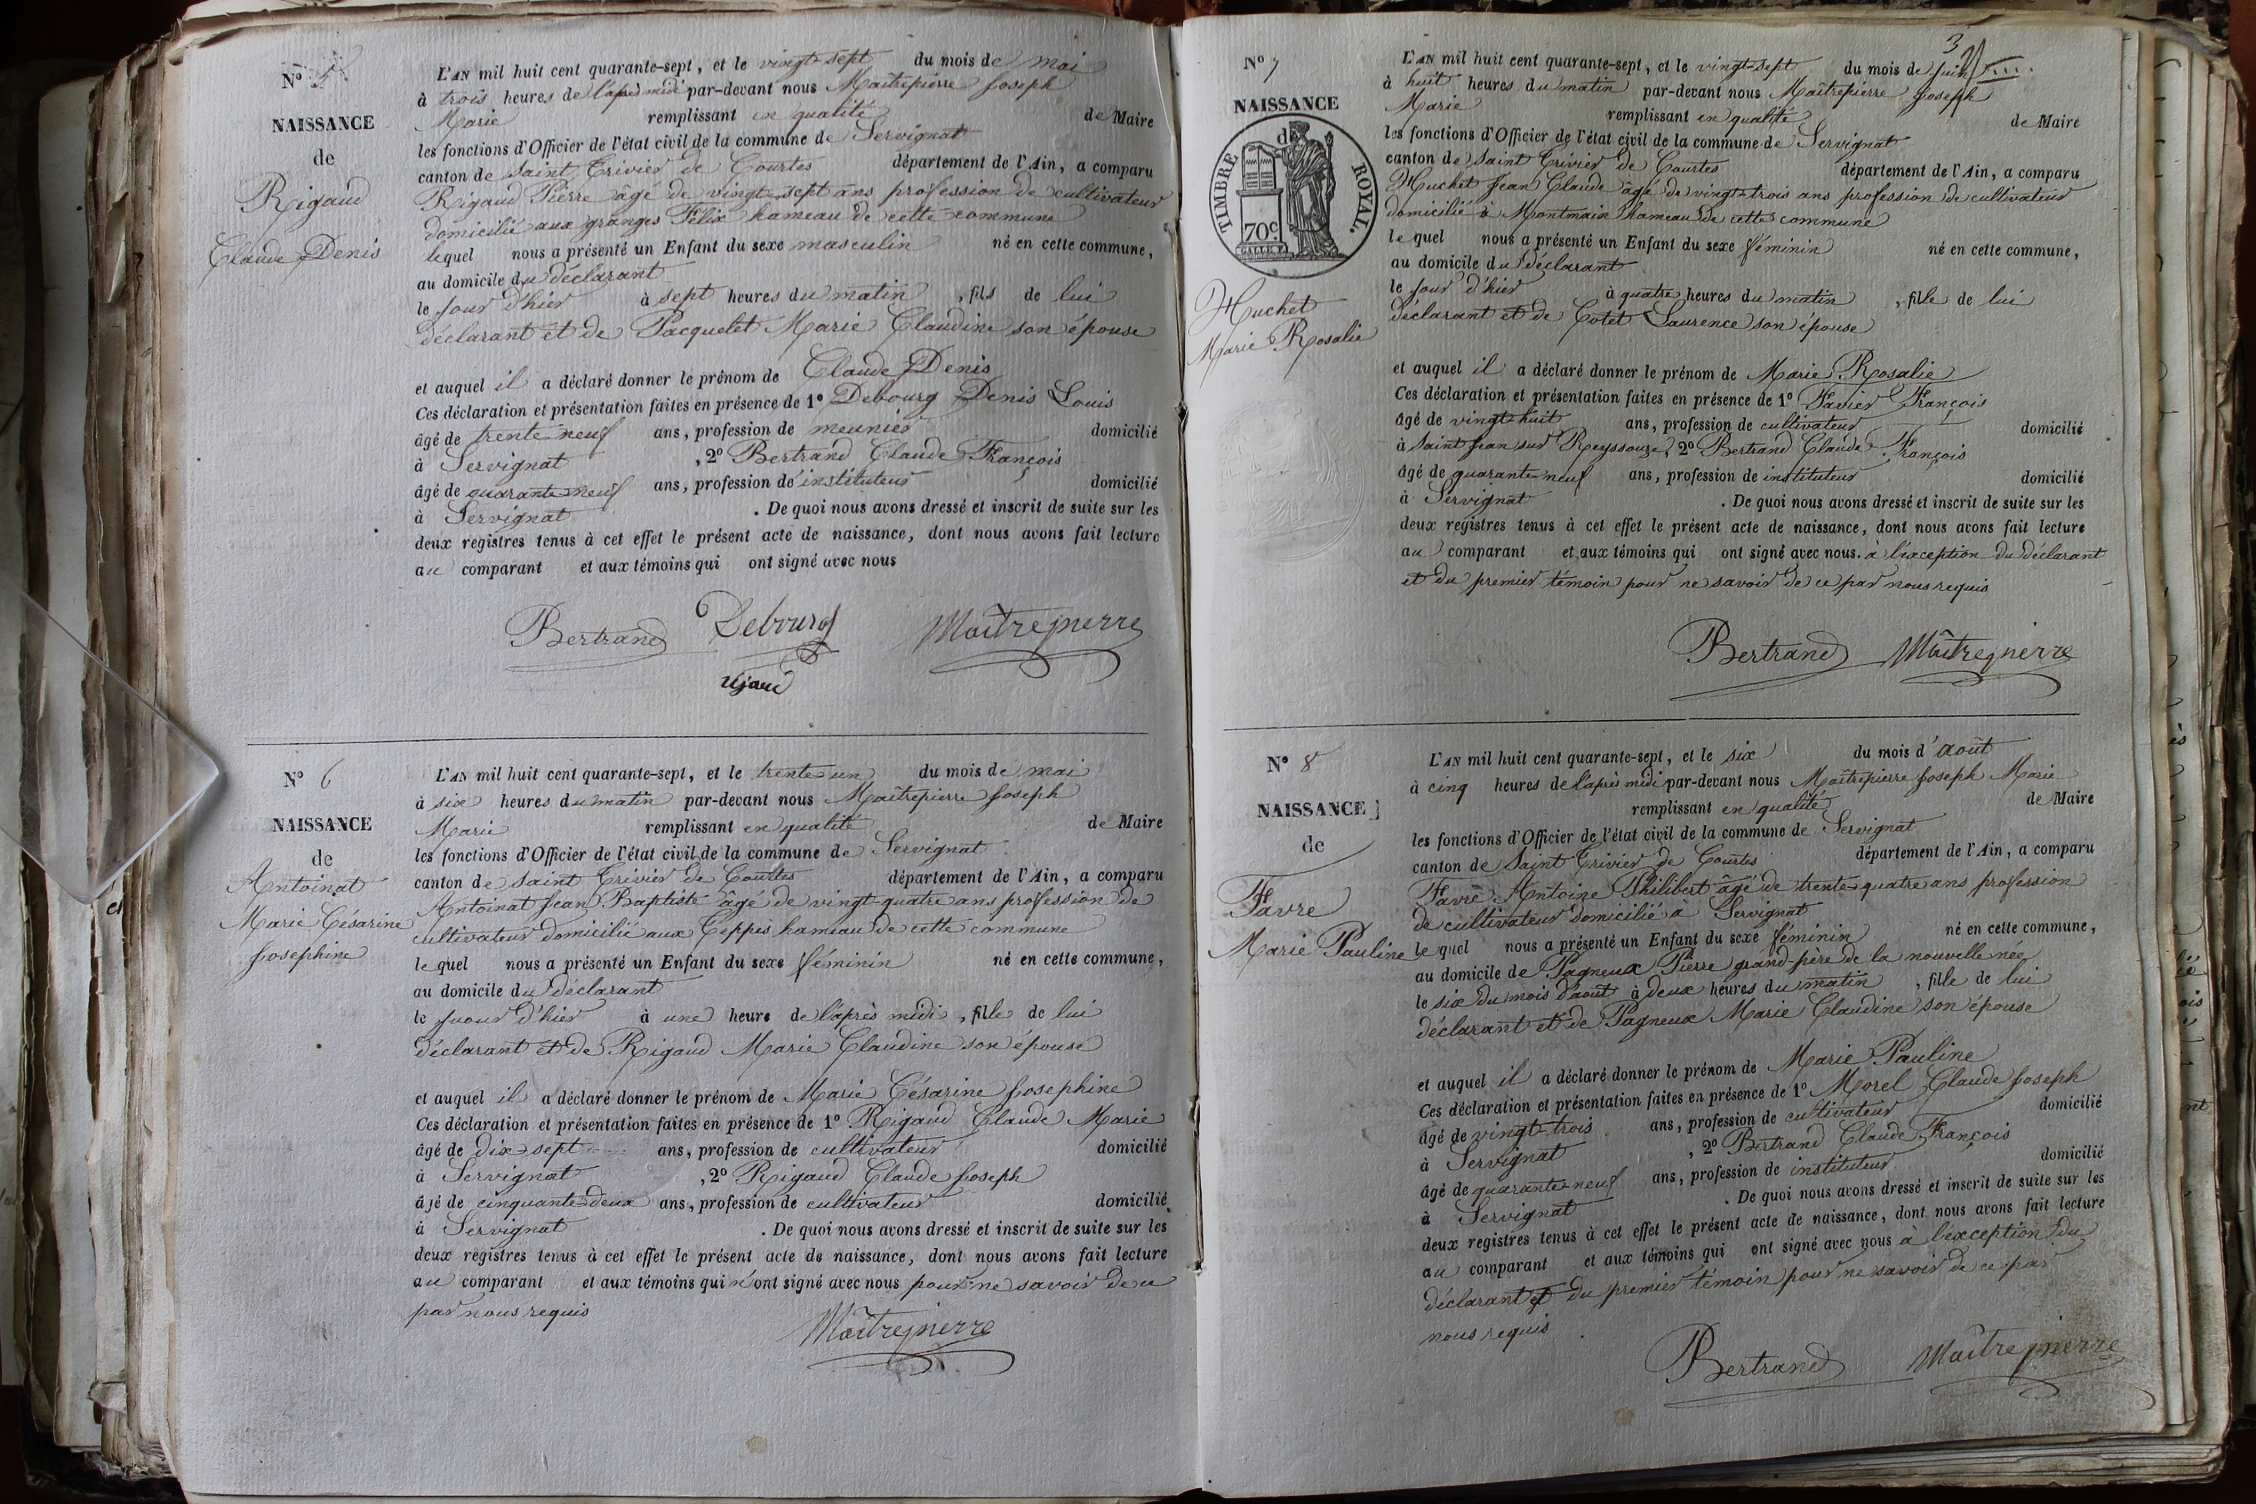 N° 5
NAISSANCE
de
Rigaud
Claude Denis
L'AN mil huit cent quarante-sept, et le vingt sept du mois de mai
à trois heures de l'après midi par-devant nous Maitrepierre Joseph
Marie remplissant en qualité de Maire
les fonctions d'Officier de l'état civil de la commune de Servignat
canton de Saint Trivier de Courtes département de l'Ain, a comparu
Rigaud Pierre âgé de vingt-sept ans profession de cultivateur
domicilié aux granges Félix hameau de cette commune
lequel nous a présenté un Enfant du sexe masculin né en cette commune,
au domicile du déclarant
le jour d'hier à sept heures du matin, fils de lui
déclarant et de Pacquelet Marie Claudine son épouse
et auquel il a déclaré donner le prénom de Claude Denis
Ces déclaration et présentation faites en présence de 1° Debourg Denis Louis
âgé de trente neuf ans, profession de meunier domicilié
à Servignat, 2° Bertrand Claude François
âgé de quarante-neuf ans, profession de instituteur domicilié
à Servignat. De quoi nous avons dressé et inscrit de suite sur les
deux registres tenus à cet effet le présent acte de naissance, dont nous avons fait lecture
au comparant et aux témoins qui ont signé avec nous
Bertrand Debourg Maîtrepierre
N° 6
NAISSANCE
de
Antoinat
Marie Césarine
Josephine
L'AN mil huit cent quarante-sept, et le trente un du mois de mai
à six heures du matin par-devant nous Maitrepierre Joseph
Marie remplissant en qualité de Maire
les fonctions d'Officier de l'état civil de la commune de Servignat
canton de Saint Trivier de Courtes département de l'Ain, a comparu
Antoinat Jean Baptiste âgé de vingt-quatre ans profession de
cultivateur domicilié aux Teppes hameau de cette commune
lequel nous a présenté un Enfant du sexe féminin né en cette commune,
au domicile du déclarant
le jour d'hier à une heure de l'après midi, fille de lui
déclarant et de Rigaud Marie Claudine son épouse
et auquel il a déclaré donner le prénom de Marie Césarine Josephine
Ces déclaration et présentation faites en présence de 1° Rigaud Claude Marie
âgé de dix-sept ans, profession de cultivateur domicilié
à Servignat, 2° Rigaud Claude Joseph
âgé de cinquante-deux ans, profession de cultivateur domicilié
à Servignat. De quoi nous avons dressé et inscrit de suite sur les
deux registres tenus à cet effet le présent acte de naissance, dont nous avons fait lecture
au comparant et aux témoins qui n'ont signé avec nous pour ne savoir de ce
par nous requis
Maîtrepierre
3
N° 7
NAISSANCE
de
TIMBRE ROYAL.
70c
Huchet
Marie Rosalie
L'AN mil huit cent quarante-sept, et le vingt-sept du mois de juin
à huit heures du matin par-devant nous Maîtrepierre Joseph
Marie remplissant en qualité de Maire
les fonctions d'Officier de l'état civil de la commune de Servignat
canton de Saint Trivier de Courtes département de l'Ain, a comparu
Huchet Jean Claude âgé de vingt-trois ans profession de cultivateur
domicilié à Montmain hameau de cette commune
lequel nous a présenté un Enfant du sexe féminin né en cette commune,
au domicile du déclarant
le jour d'hier à quatre heures du matin, fille de lui
déclarant et de Cotet Laurence son épouse
et auquel il a déclaré donner le prénom de Marie Rosalie
Ces déclaration et présentation faites en présence de 1° Favier François
âgé de vingt-huit ans, profession de cultivateur domicilié
à Saint Jean sur Reyssouze, 2° Bertrand Claude François
âgé de quarante-neuf ans, profession de instituteur domicilié
à Servignat. De quoi nous avons dressé et inscrit de suite sur les
deux registres tenus à cet effet le présent acte de naissance, dont nous avons fait lecture
au comparant et aux témoins qui ont signé avec nous. à l'exception du déclarant
et du premier témoin pour ne savoir de ce par nous requis
Bertrand Maîtrepierre
N° 8
NAISSANCE
de
Favre
Marie Pauline
L'AN mil huit cent quarante-sept, et le six du mois d'août
à cinq heures de l'après midi par-devant nous Maîtrepierre Joseph Marie
remplissant en qualité de Maire
les fonctions d'Officier de l'état civil de la commune de Servignat
canton de Saint Trivier de Courtes département de l'Ain, a comparu
Favre Antoine Philibert âgé de trente-quatre ans profession
de cultivateur domicilié à Servignat
lequel nous a présenté un Enfant du sexe féminin né en cette commune,
au domicile de Pagneux Pierre grand-père de la nouvelle née
le six du mois d'août à deux heures du matin, fille de lui
déclarant et de Pagneux Marie Claudine son épouse
et auquel il a déclaré donner le prénom de Marie Pauline
Ces déclaration et présentation faites en présence de 1° Morel Claude Joseph
âgé de vingt-trois ans, profession de cultivateur domicilié
à Servignat, 2° Bertrand Claude François
âgé de quarante-neuf ans, profession de instituteur domicilié
à Servignat. De quoi nous avons dressé et inscrit de suite sur les
deux registres tenus à cet effet le présent acte de naissance, dont nous avons fait lecture
au comparant et aux témoins qui ont signé avec nous à l'exception du
déclarant et du premier témoin pour ne savoir de ce par
nous requis
Bertrand Maîtrepierre